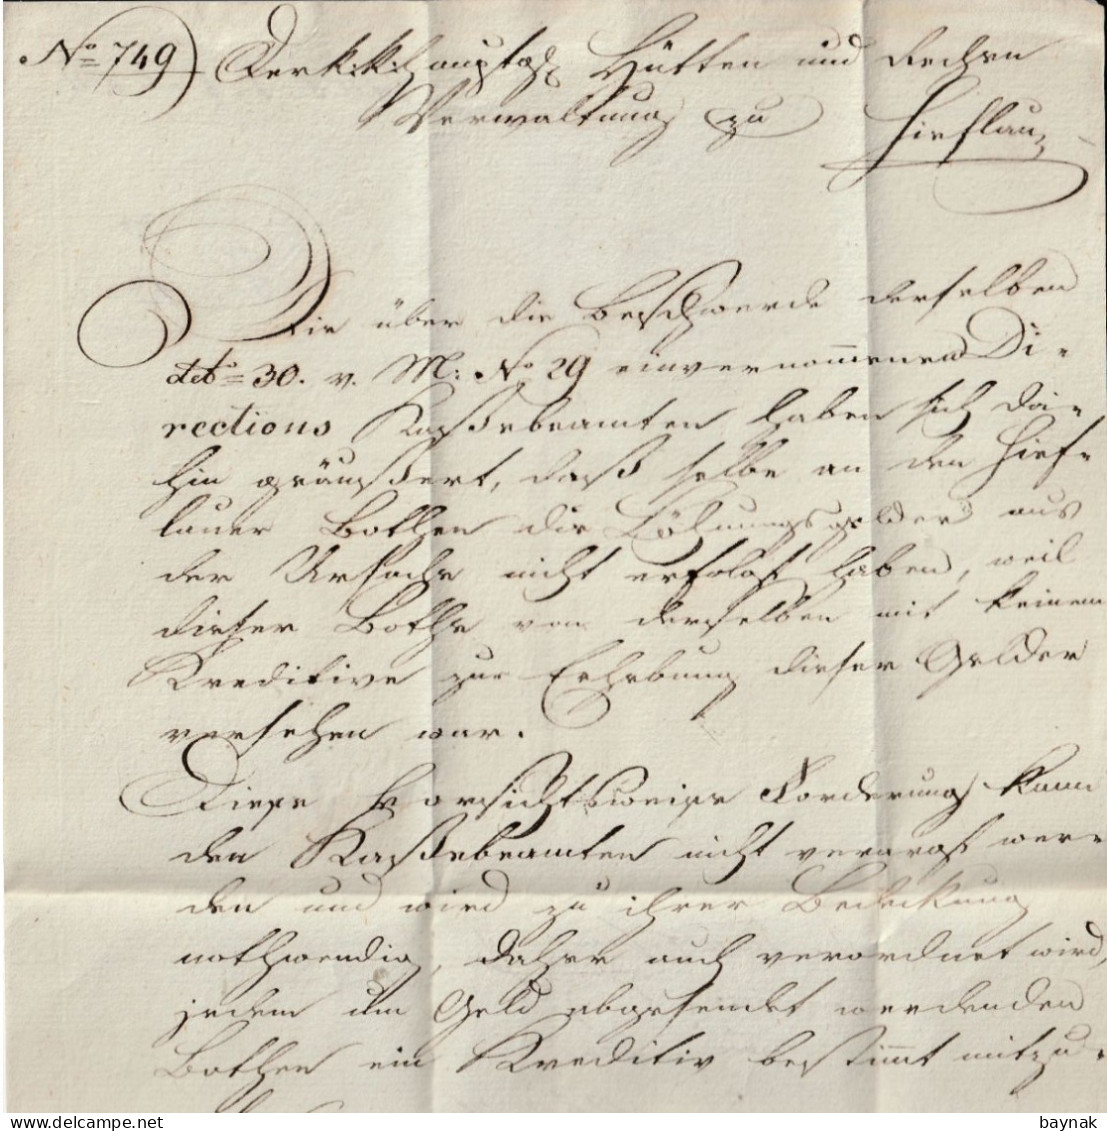 No 749) Der k: k: Hauptgh. Hütten und Rechen
Verwaltung zu Hieflau
Die über die Beschwerde derselben
ddto 30. v. M: No 29 einvernommenen Di-
rections Kaßebeamten haben sich da-
hin geäußert, daß selbe an den Hief-
lauer Bothen die Löhnungsgelder aus
der Ursache nicht erfolgt haben, weil
dieser Bothe von derselben mit keinem
Kreditive zur Erhebung dieser Gelder
versehen war.
Diese Vorsichtsweise Forderung kann
den Kaßebeamten nicht verargt wer-
den und wird zu ihrer Bedeckung
nothwendig, daher auch verordnet wird,
jedem um Geld abgesendet werdenden
Bothen ein Kreditiv bestimmt mitzu-
baynak